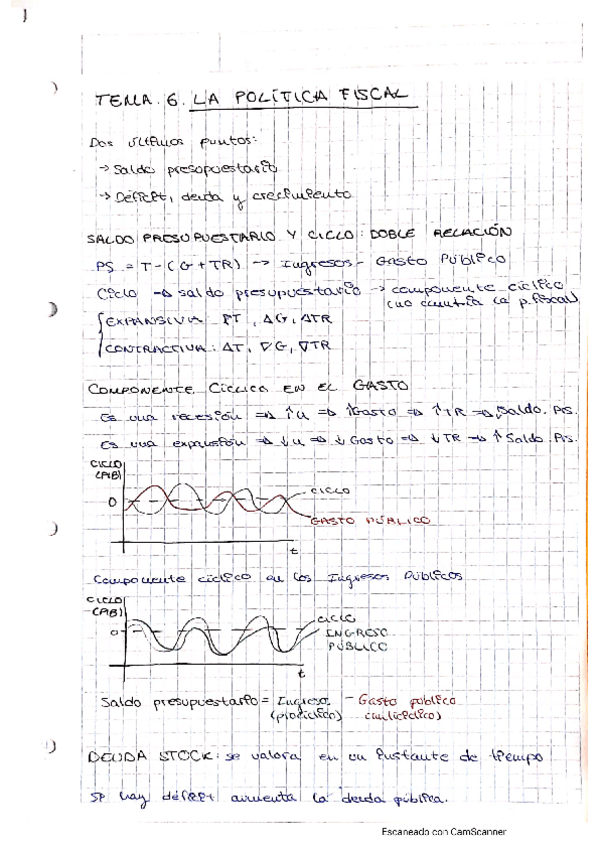 1
TEMA 6. LA POLÍTICA FISCAL
Dos últimos puntos:
→ Saldo presupuestario
→ Déficit, deuda y crecimiento
SALDO PRESUPUESTARIO Y CICLO: DOBLE RELACIÓN
PS = T-(G+TR) → Ingresos - Gasto Público
Ciclo → saldo presupuestario → componente cíclico
(no cuantía la p.fiscal)
EXPANSIVA: ∇T, ΔG, ΔTR
CONTRACTIVA: ΔT, ∇G, ∇TR
COMPONENTE CÍCLICO EN EL GASTO
Es una recesión ⇒ ↑u ⇒ ↑Gasto ⇒ ↑TR ⇒ ↓Saldo. Prs.
Es una expansión ⇒ ↓u ⇒ ↓Gasto ⇒ ↓TR ⇒ ↑Saldo Prs.
CICLO
(PIB)
0
CICLO
GASTO PÚBLICO
t
Componente cíclico en los Ingresos Públicos
CICLO
(PIB)
0
CICLO
INGRESO
PÚBLICO
t
Saldo presupuestario = Ingreso - Gasto público
(procíclico) (anticíclico)
DEUDA STOCK: se valora en un instante de tiempo
Si hay déficit aumenta la deuda pública.
Escaneado con CamScanner